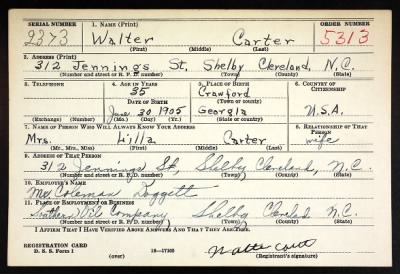 SERIAL NUMBER 1. NAME (Print) ORDER NUMBER
2373 Walter Carter 5313
(First) (Middle) (Last)
2. ADDRESS (Print)
312 Jennings St, Shelby Cleveland, N.C.
(Number and street or R. F. D. number) (Town) (County) (State)
3. TELEPHONE 4. AGE IN YEARS 5. PLACE OF BIRTH 6. COUNTRY OF CITIZENSHIP
35 Crawford
DATE OF BIRTH (Town or county)
June 30 1905 Georgia U.S.A.
(Exchange) (Number) (Mo.) (Day) (Yr.) (State or country)
7. NAME OF PERSON WHO WILL ALWAYS KNOW YOUR ADDRESS 8. RELATIONSHIP OF THAT PERSON
Mrs. Lilla Carter wife
(Mr., Mrs., Miss) (First) (Middle) (Last)
9. ADDRESS OF THAT PERSON
312 Jennings St, Shelby Cleveland, N.C.
(Number and street or R. F. D. number) (Town) (County) (State)
10. EMPLOYER'S NAME
Mr Coleman
11. PLACE OF EMPLOYMENT OR BUSINESS
Southern Oil Company Shelby Cleveland N.C.
(Number and street or R. F. D. number) (Town) (County) (State)
I AFFIRM THAT I HAVE VERIFIED ABOVE ANSWERS AND THAT THEY ARE TRUE.
REGISTRATION CARD
D. S. S. Form 1 (over) 16—17105 Walter Carter
(Registrant's signature)